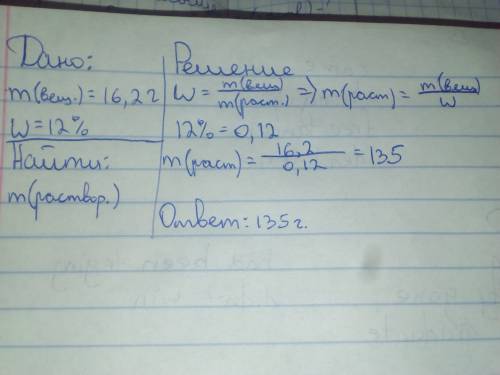 Дано:
m(вещ.) = 16,2 г
W = 12%
Найти:
m(раствор.)
Решение
W = m(вещ)/m(раст.) => m(раст) = m(вещ)/W
12% = 0,12
m(раст) = 16,2/0,12 = 135
Ответ: 135 г.